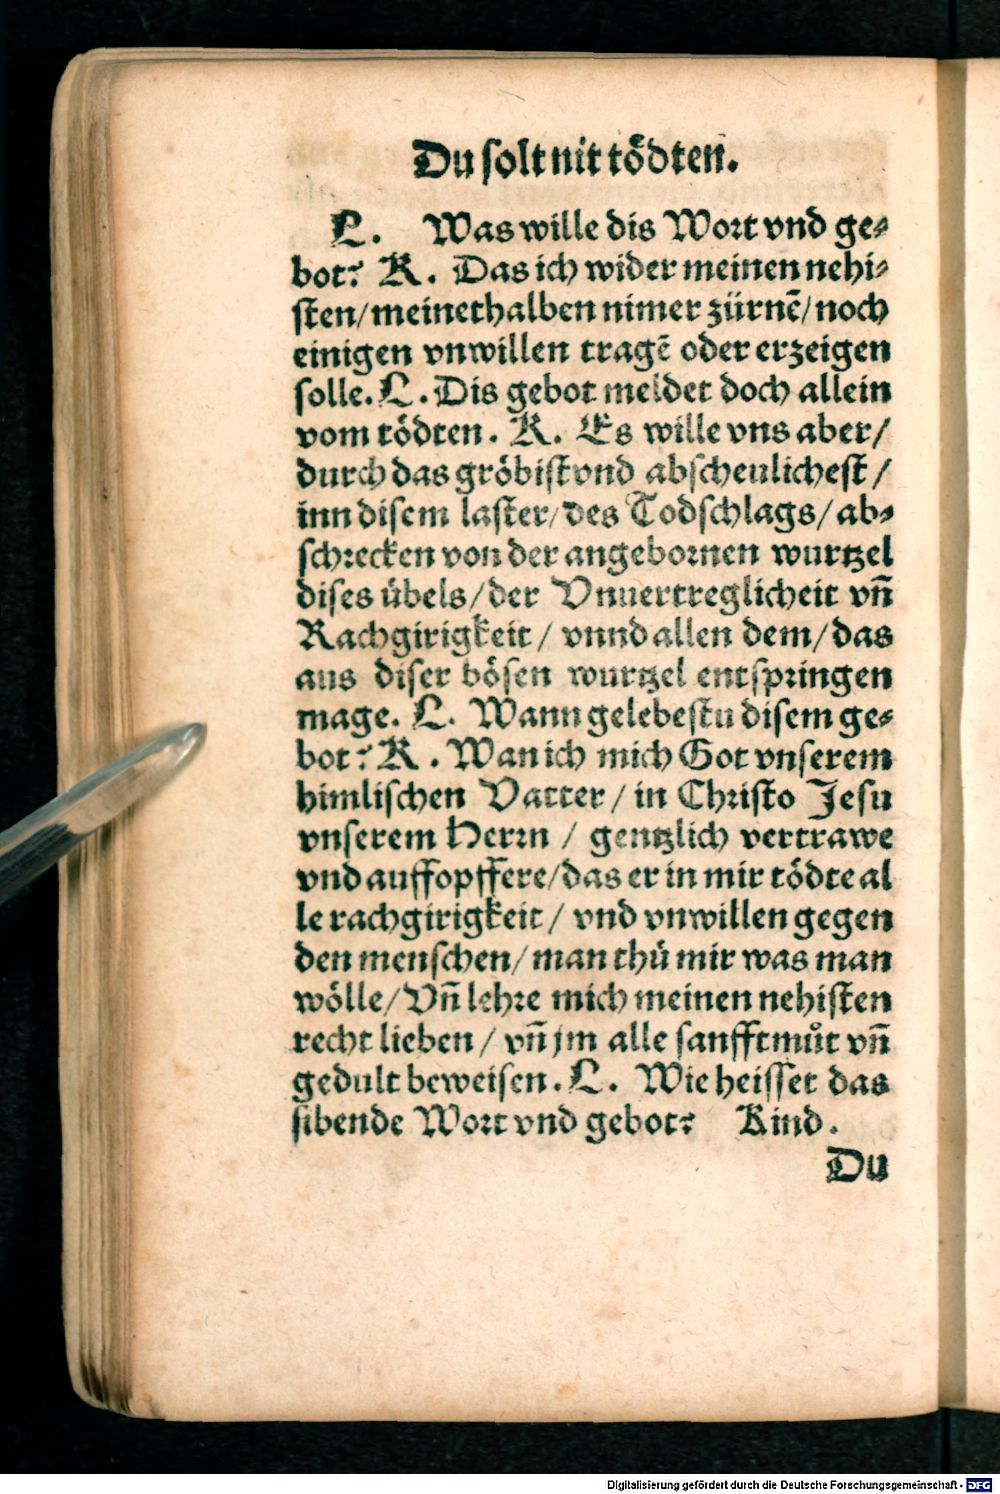 Du solt nit tödten.
L. Was wille dis Wort vnd ge⸗
bot? K. Das ich wider meinen nehi⸗
sten/meinethalben nimer zürnē/noch
einigen vnwillen tragē oder erzeigen
solle. L. Dis gebot meldet doch allein
vom tödten. K. Es wille vns aber/
durch das gröbist vnd abscheulichest/
inn disem laster/des Todschlags/ab⸗
schrecken von der angebornen wurtzel
dises übels/der Vnuertreglicheit vn̄
Rachgirigkeit/ vnnd allen dem/das
aus diser bösen wurtzel entspringen
mage. L. Wann gelebestu disem ge⸗
bot? K. Wan ich mich Got vnserem
himlischen Vatter/in Christo Jesu
vnserem Herrn / gentzlich vertrawe
vnd auffopffere/das er in mir tödte al
le rachgirigkeit/ vnd vnwillen gegen
den menschen/man thů mir was man
wölle/Vn̄ lehre mich meinen nehisten
recht lieben/ vn̄ jm alle sanfftmůt vn̄
gedult beweisen. L. Wie heisset das
sibende Wort vnd gebot? Kind.
Du
Digitalisierung gefördert durch die Deutsche Forschungsgemeinschaft - DFG